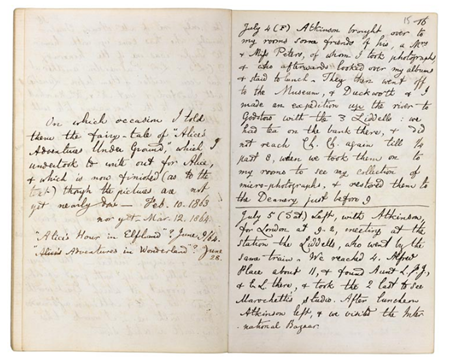 On which occasion I told
them the fairy-tale of "Alice's
Adventures Under Ground," which I
undertook to write out for Alice,
& which is now finished (as to the
text) though the pictures are not
yet nearly done — Feb. 10. 1863
nor yet — Mar. 12. 1864.
"Alice's Hour in Elfland"? June 9/64.
"Alice's Adventures in Wonderland"? June
28.
15 16
July 4 (F) Atkinson brought over to
my rooms some friends of his, a Mrs
& Miss Peters, of whom I took photographs
& who afterwards looked over my album
& staid to lunch. They then went off
to the Museum, & Duckworth & I
made an expedition up the river to
Godstow with the 3 Liddells: we
had tea on the bank there, & did
not reach Ch. Ch. again till ¼
past 8, when we took them on to
my rooms to see my collection of
micro-photographs, & restored them to
the Deanery, just before 9
July 5 (Sat) Left, with Atkinson,
for London at 9.2, meeting at the
station the Liddells, who went by the
same train. We reached 4. Alfred
Place about 11, & found Aunt L., P.J.,
& L. there, & took the 2 last to see
Marochetti's studio. After luncheon
Atkinson left, & we visited the Inter-
national Bazaar.